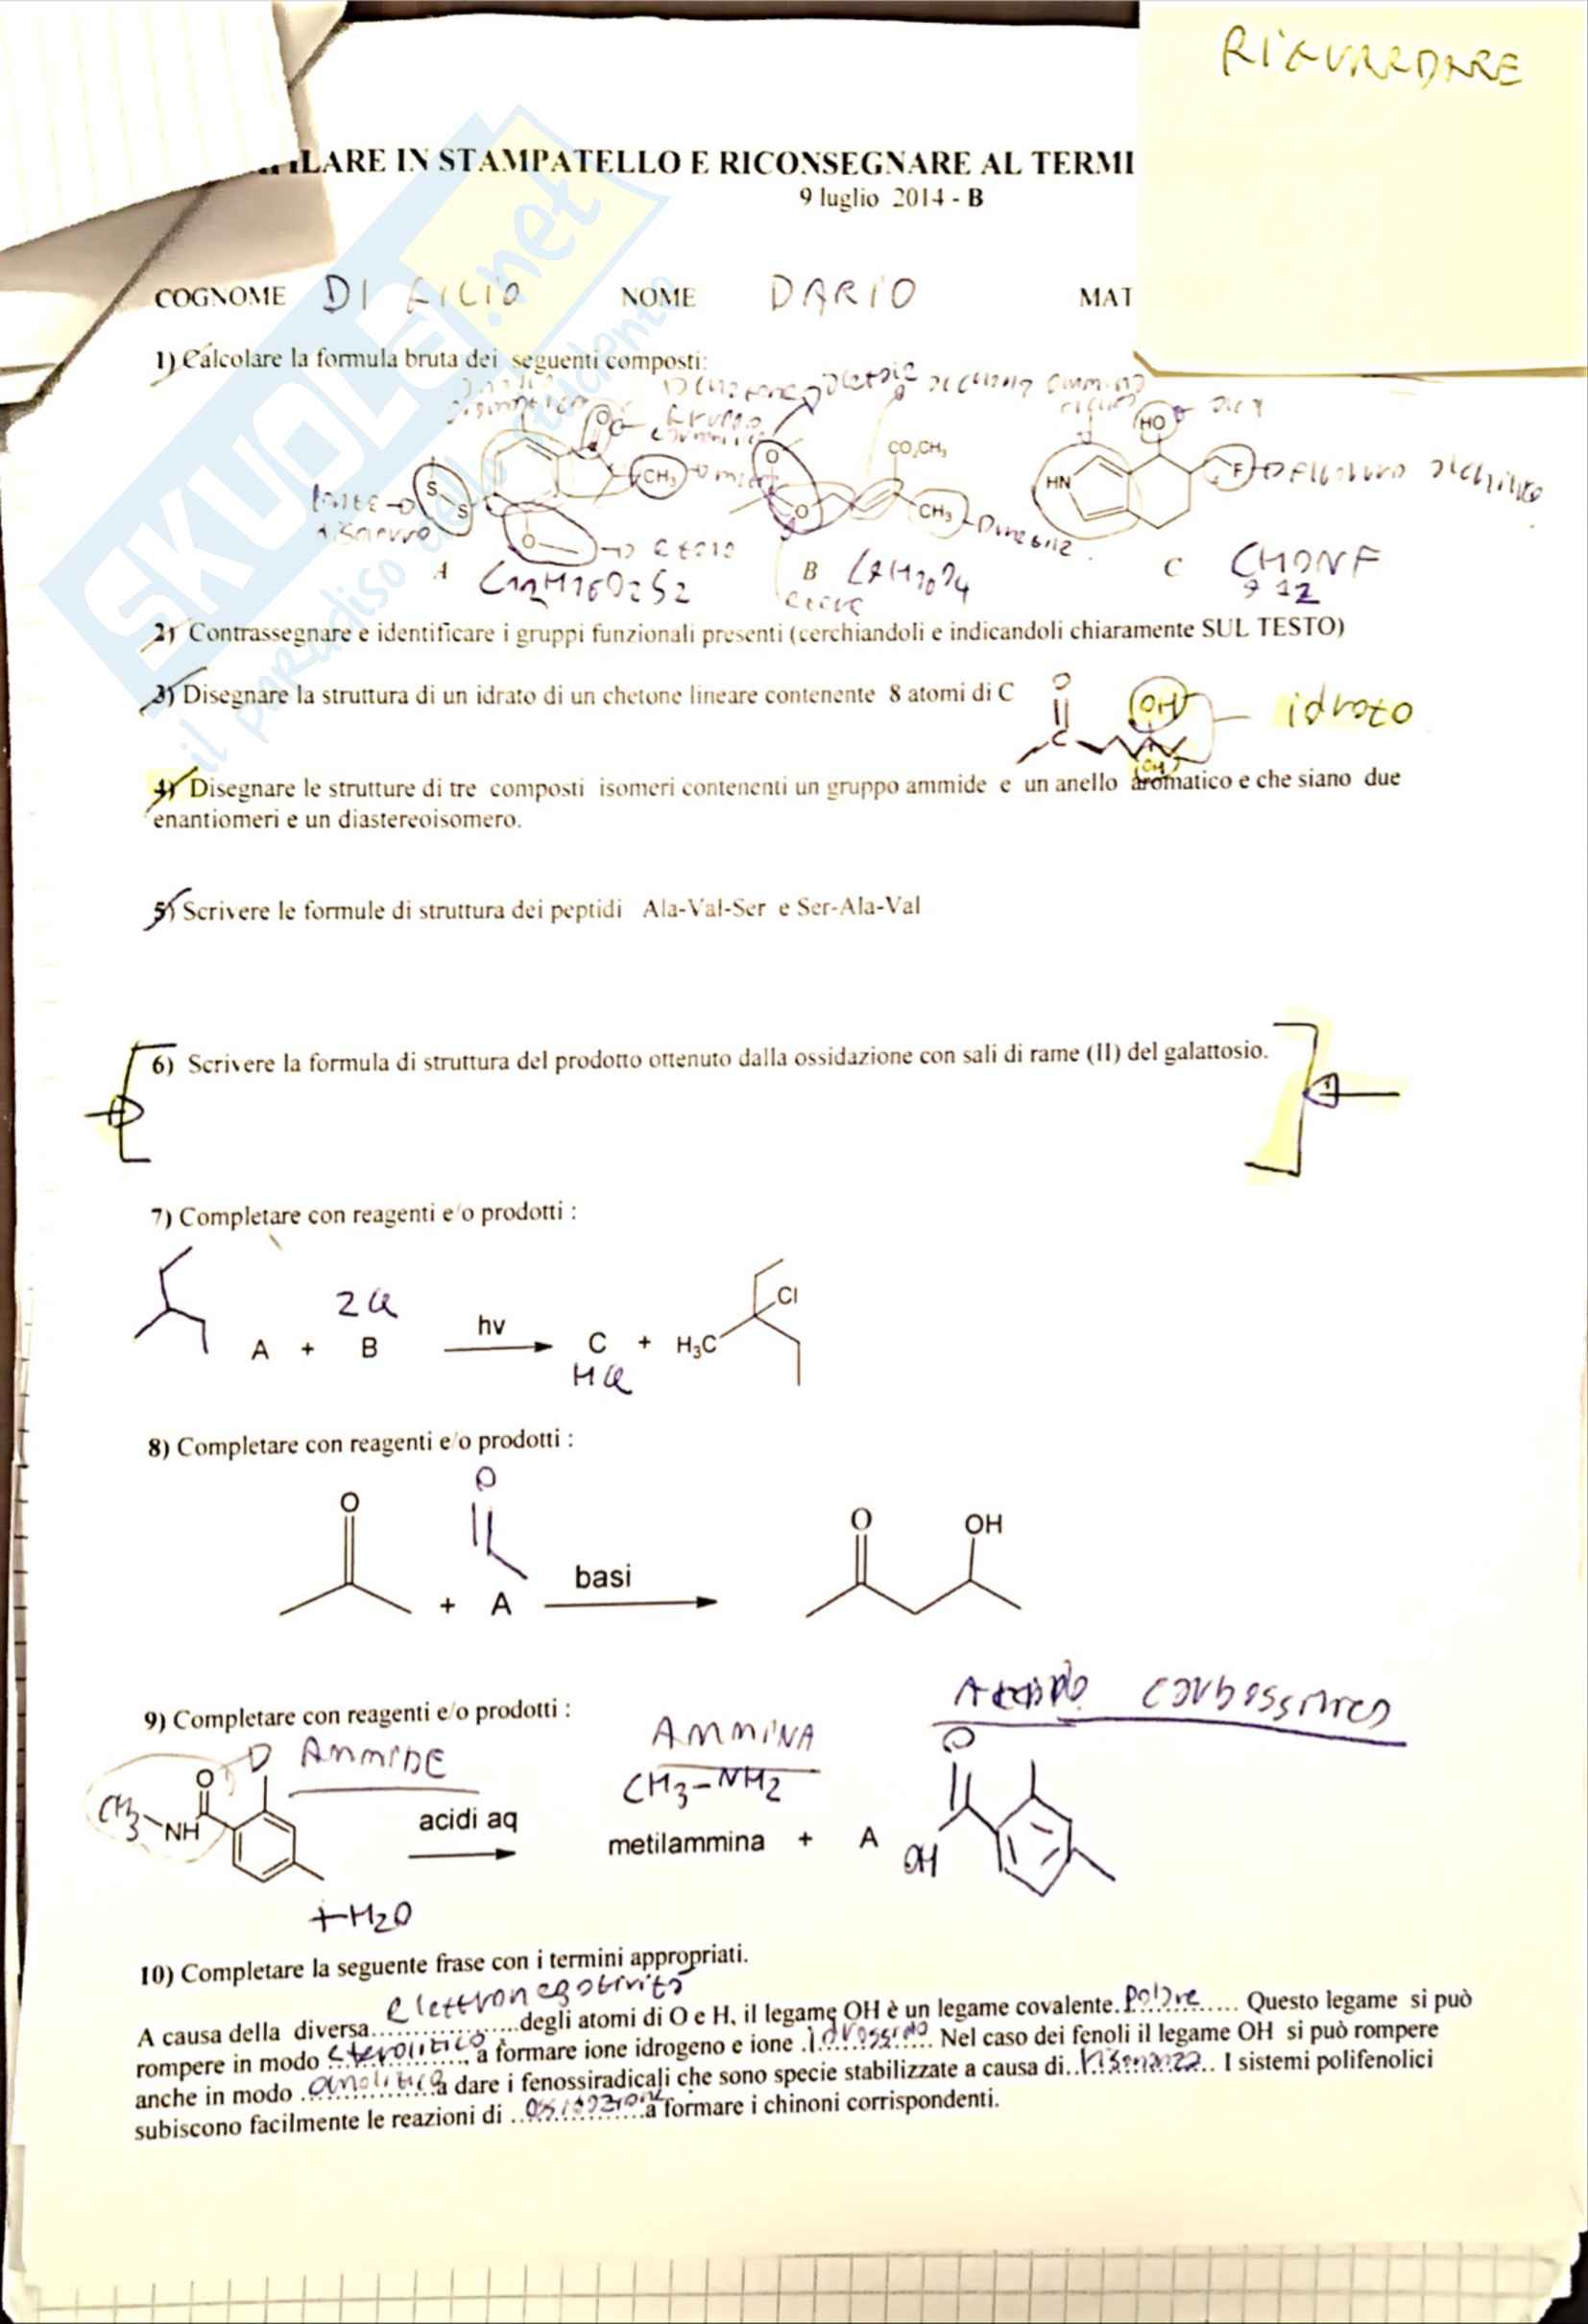 RIGUARDARE
ILARE IN STAMPATELLO E RICONSEGNARE AL TERMI
9 luglio 2014 - B
COGNOME DI NOME DARIO MAT
1) Calcolare la formula bruta dei seguenti composti:
CO2CH3
HO
O
O
CH3
HN
F
S
S
O
CH3
O
A C12H16O2S2
B
C CHONF
9 12
2) Contrassegnare e identificare i gruppi funzionali presenti (cerchiandoli e indicandoli chiaramente SUL TESTO)
3) Disegnare la struttura di un idrato di un chetone lineare contenente 8 atomi di C
O
C
OH
OH
idrato
4) Disegnare le strutture di tre composti isomeri contenenti un gruppo ammide e un anello aromatico e che siano due
enantiomeri e un diastereoisomero.
5) Scrivere le formule di struttura dei peptidi Ala-Val-Ser e Ser-Ala-Val
6) Scrivere la formula di struttura del prodotto ottenuto dalla ossidazione con sali di rame (II) del galattosio.
7) Completare con reagenti e/o prodotti :
2Cl
Cl
A + B hv C + H3C
HCl
8) Completare con reagenti e/o prodotti :
O O O OH
+ A basi
9) Completare con reagenti e/o prodotti :
carbossilico
AMMIDE AMMINA
O
CH3-NH2
O
CH3 NH acidi aq metilammina + A
OH
+H2O
10) Completare la seguente frase con i termini appropriati.
A causa della diversa elettronegatività degli atomi di O e H, il legame OH è un legame covalente polare Questo legame si può
rompere in modo eterolitico, a formare ione idrogeno e ione idrossido. Nel caso dei fenoli il legame OH si può rompere
anche in modo a dare i fenossiradicali che sono specie stabilizzate a causa di risonanza. I sistemi polifenolici
subiscono facilmente le reazioni di ossidazione a formare i chinoni corrispondenti.
SKUOLA.net
il paradiso dello studente